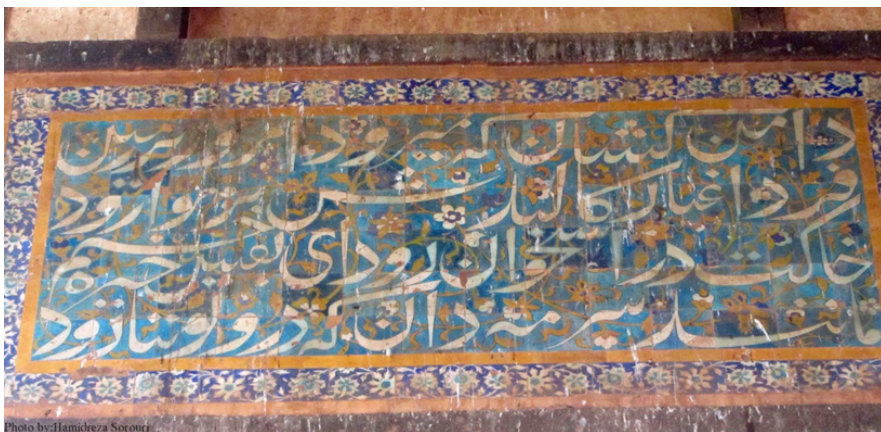 دامن کشان که میرود امروز بر زمین
فردا غبار کالبدش بر هوا رود
خاکت در استخوان رود ای نفس
مانند سرمه دان که درو توتیا رود
Photo by:Hamidreza Sorouri